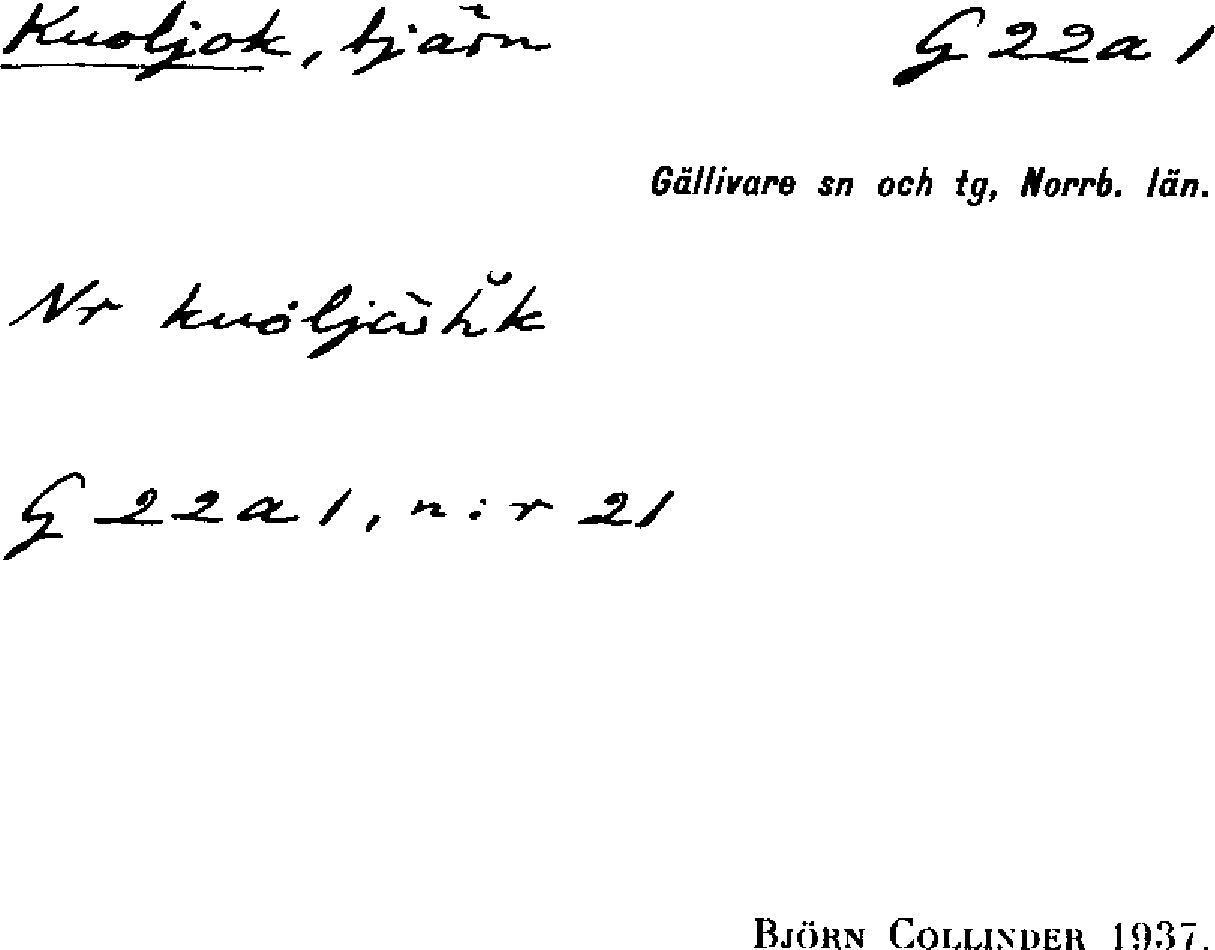 Kuoljok, tjärn G 22a 1
Gällivare sn och tg, Norrb. län.
Nr
G 22a 1, n:r 21
BJÖRN COLLINDER 1937.